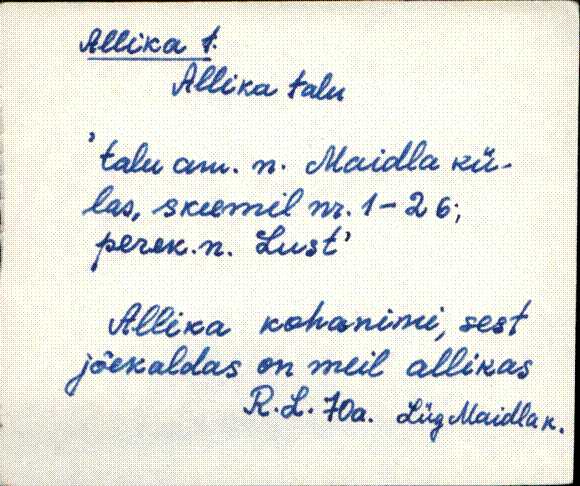 Allika t.
Allika talu
'talu am. n. Maidla kü-
las, skeemil nr. 1-26;
perek. n. Lust'
Allika kohanimi, sest
jõekaldas on meil allikas
R.L. 70a. Lüg Maidla k.